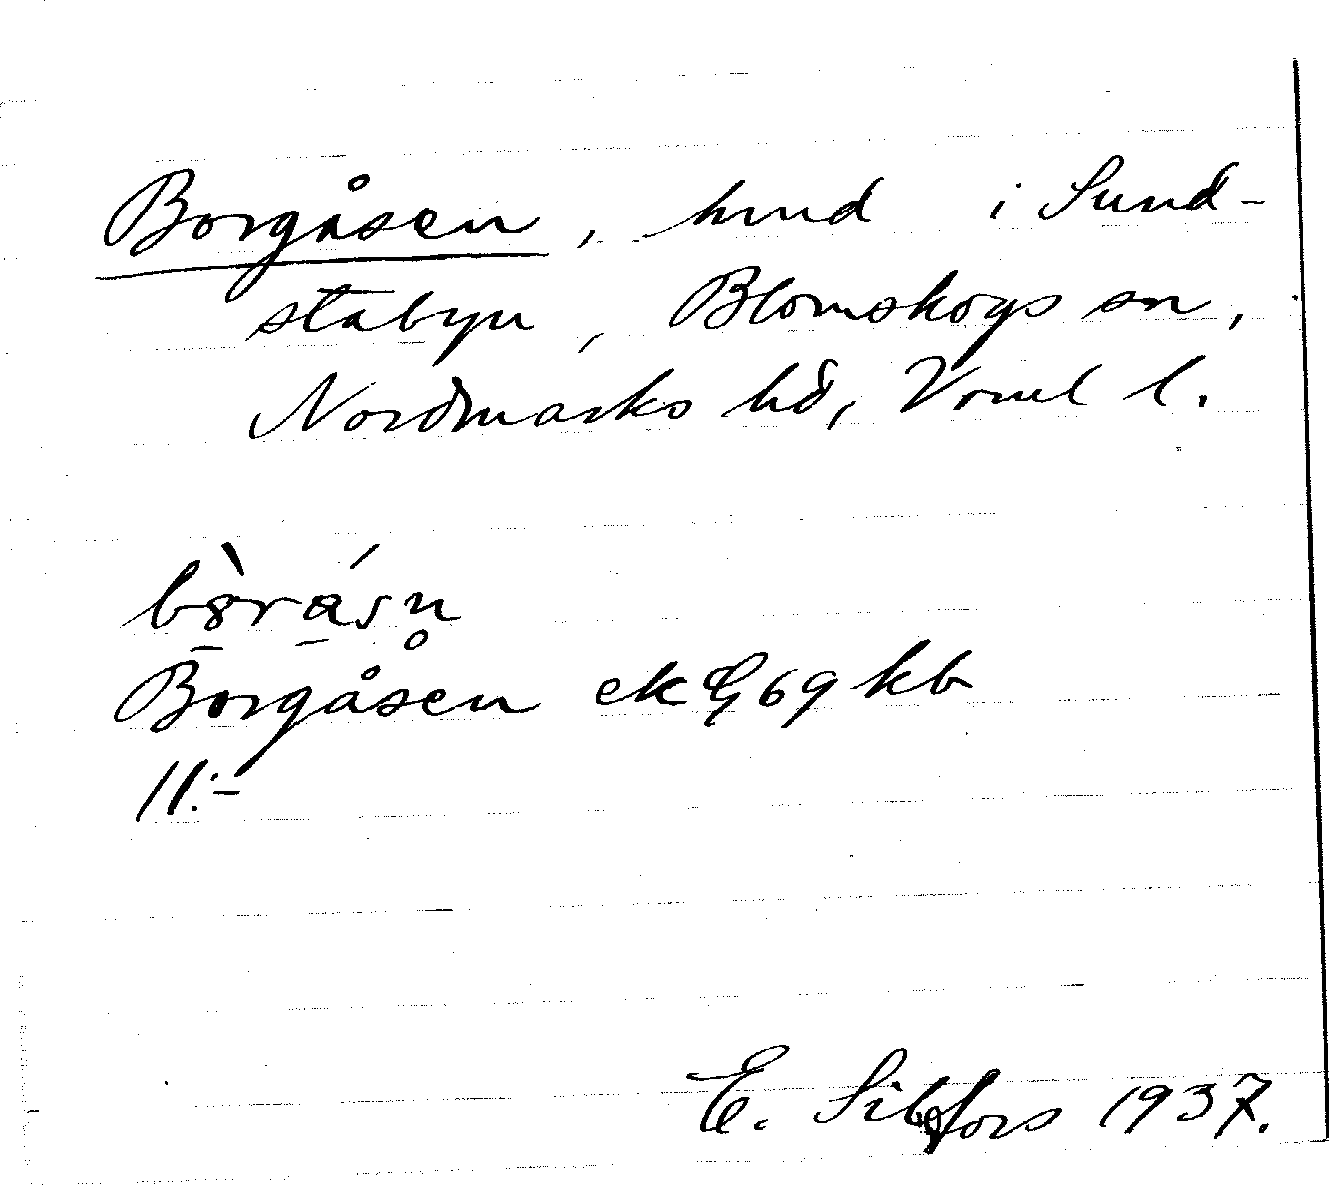 Borgåsen, hmd i Sund-
stabyn, Blomskogs sn,
Nordmarks hd, Vrml l.
Borgåsen ek G 69 kb
11:-
E. Sibfors 1937.